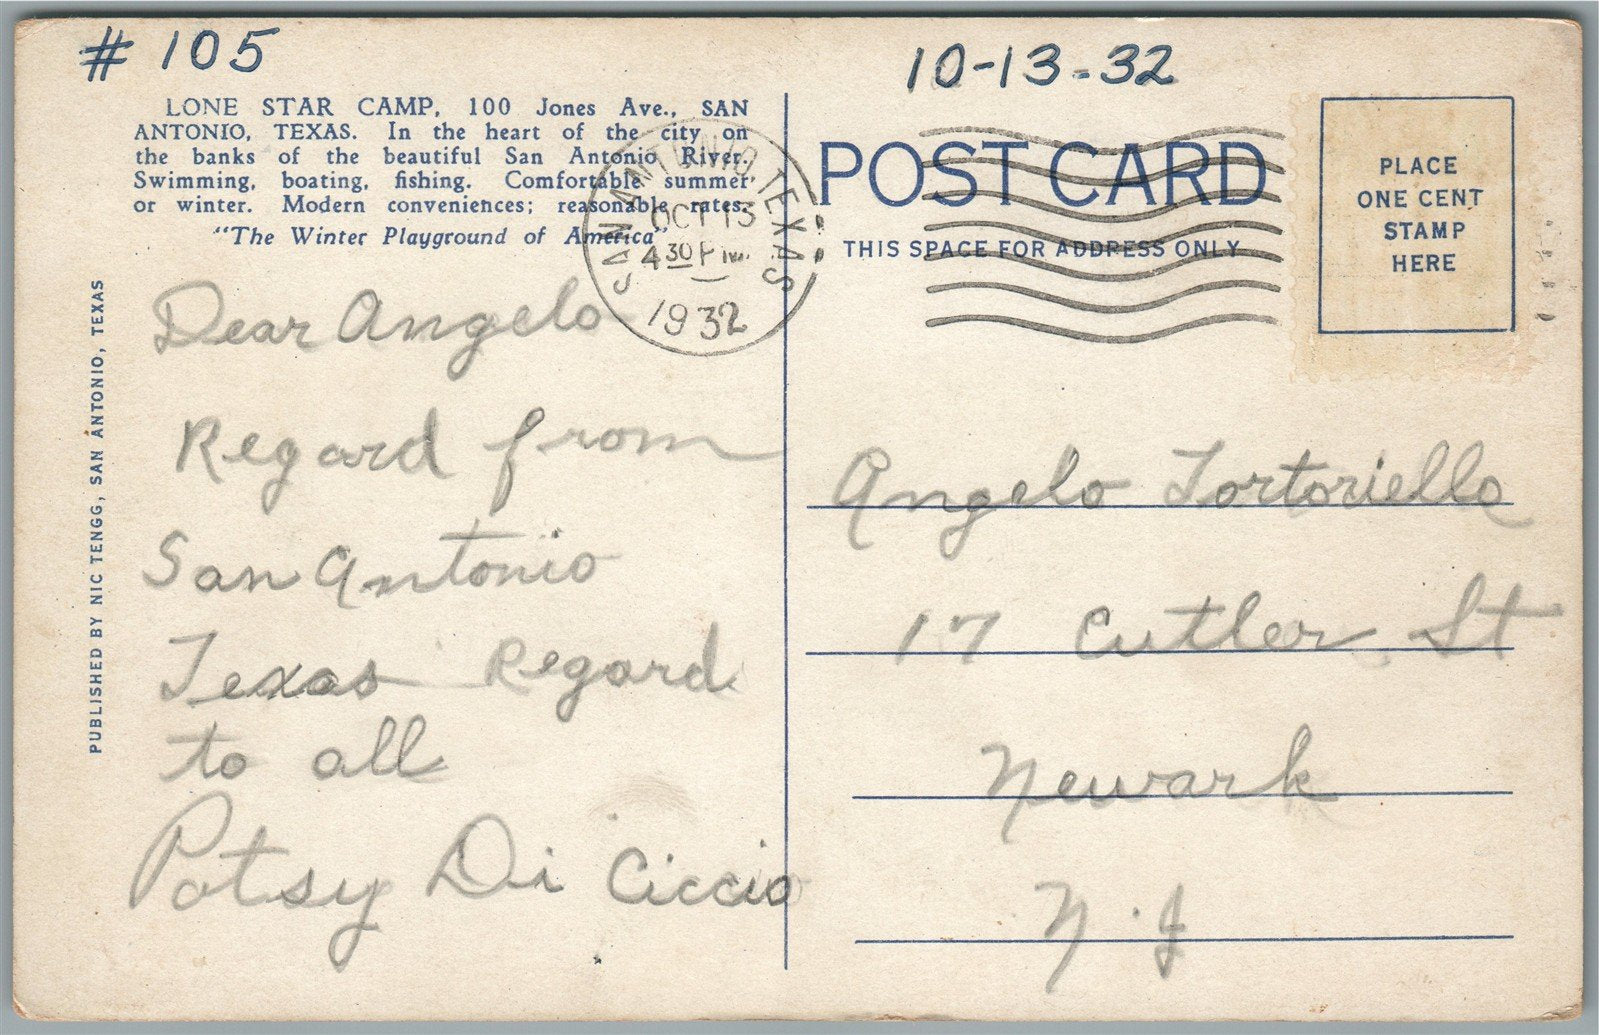 # 105
10-13-32
LONE STAR CAMP, 100 Jones Ave., SAN
ANTONIO, TEXAS. In the heart of the city on
the banks of the beautiful San Antonio River.
Swimming, boating, fishing. Comfortable summer
or winter. Modern conveniences; reasonable rates.
"The Winter Playground of America"
SAN ANTONIO, TEXAS
OCT 13
4 30 PM
1932
Dear Angelo
Regard from
San Antonio
Texas Regard
to all
Patsy Di Ciccio
PUBLISHED BY NIC TENGG, SAN ANTONIO, TEXAS
POST CARD
THIS SPACE FOR ADDRESS ONLY
PLACE
ONE CENT
STAMP
HERE
Angelo Tortoriello
17 Cutler St
Newark
N.J